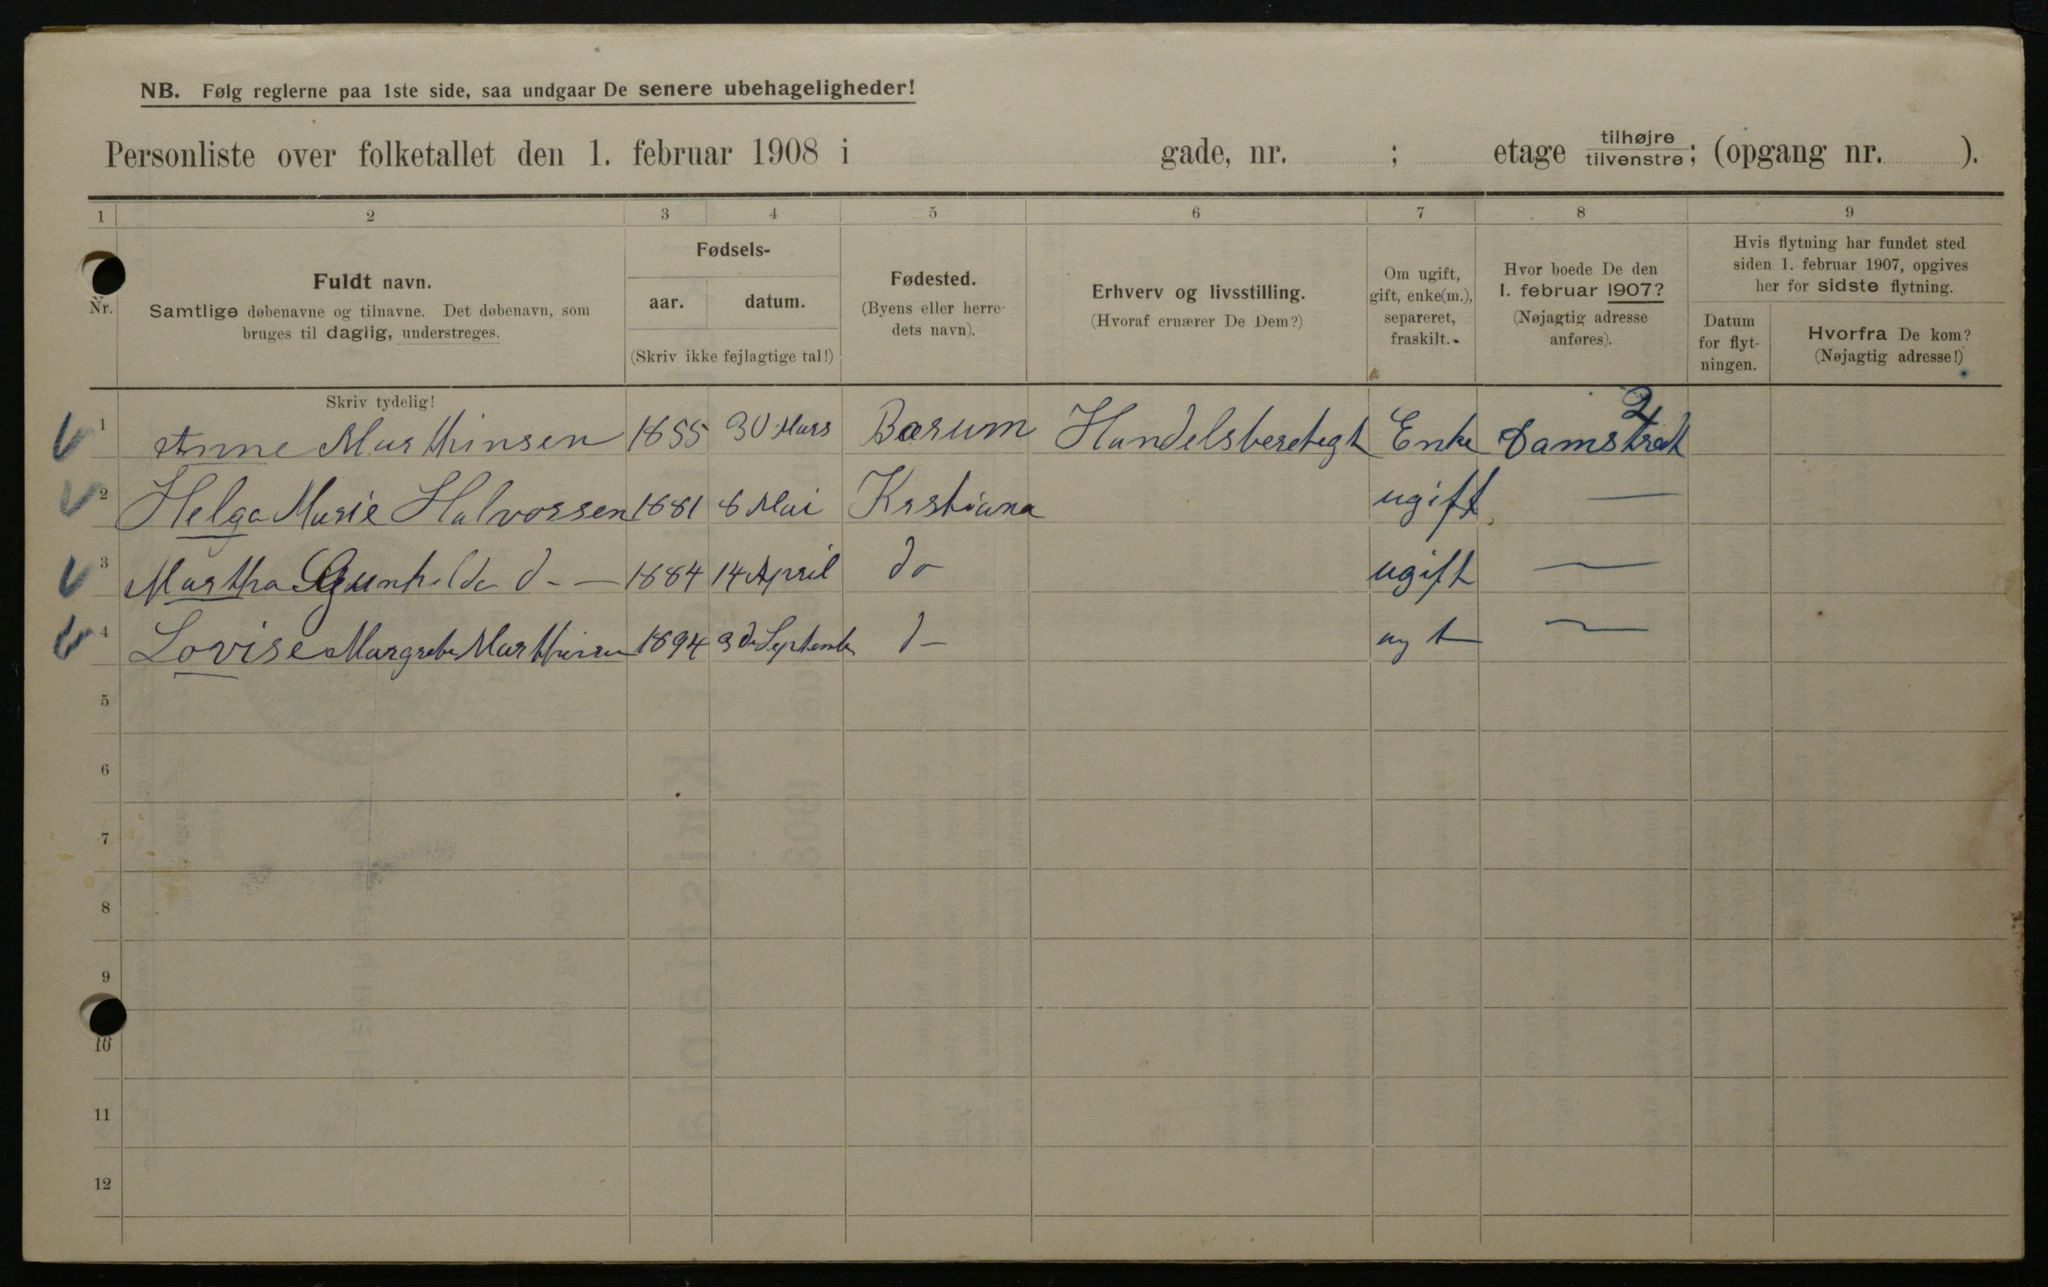 NB. Følg reglerne paa 1ste side, saa undgaar De senere ubehageligheder!
Personliste over folketallet den 1. februar 1908 i gade, nr. ; etage tilhøjre/tilvenstre; (opgang nr. ).
1 2 3 4 5 6 7 8 9
Nr.
Fuldt navn.
Samtlige døbenavne og tilnavne. Det døbenavn, som
bruges til daglig, understreges.
Skriv tydelig!
Fødsels-
aar. datum.
(Skriv ikke fejlagtige tal!)
Fødested.
(Byens eller herre-
dets navn).
Erhverv og livsstilling.
(Hvoraf ernærer De Dem?)
Om ugift,
gift, enke(m.),
separeret,
fraskilt.
Hvor boede De den
1. februar 1907?
(Nøjagtig adresse
anføres).
Hvis flytning har fundet sted
siden 1. februar 1907, opgives
her for sidste flytning.
Datum
for flyt-
ningen.
Hvorfra De kom?
(Nøjagtig adresse!)
1 Anne Marthinsen 1855 30 Mars Bærum Handelsberetegt Enke Damstredt 2
2 Helga Marie Halvorsen 1881 8 Mai Krstiana ugift —
3 Martha Gunhilda d — 1884 14 April do ugift —
4 Lovise Margrete Marthinsen 1894 3 Septemb d — —
5
6
7
8
9
10
11
12